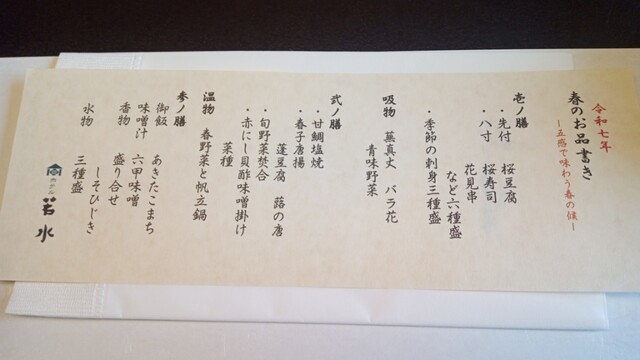 令和七年
春のお品書き
―五感で味わう春の候―
壱ノ膳
・先付 桜豆腐
・八寸 桜寿司
花見串
など六種盛
・季節の刺身三種盛
吸物 蕪真丈 バラ花
青味野菜
弐ノ膳
・甘鯛塩焼
・春子唐揚
蓮豆腐 蕗の唐
・旬野菜焚合
・赤にし貝酢味噌掛け
菜種
温物 春野菜と帆立鍋
参ノ膳
御飯 あきたこまち
味噌汁 六甲味噌
香物 盛り合せ
しそひじき
水物 三種盛
ホテル
若水